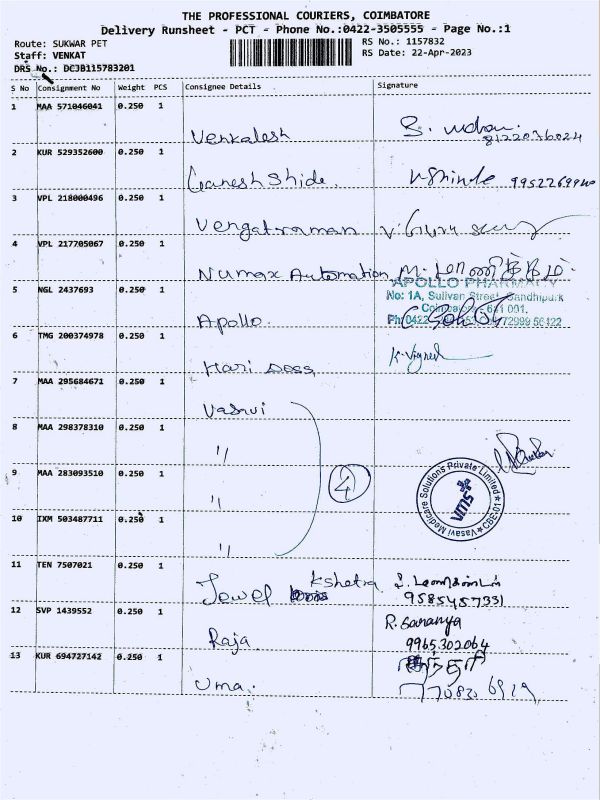 THE PROFESSIONAL COURIERS, COIMBATORE
Delivery Runsheet - PCT - Phone No.:0422-3505555 - Page No.:1
Route: SUKWAR PET
RS No.: 1157832
Staff: VENKAT
RS Date: 22-Apr-2023
DRS No.: DCJB115783201
S No Consignment No Weight PCS Consignee Details Signature
1 MAA 571046041 0.250 1
Venkalesh S. 8122036024
2 KUR 529352600 0.250 1
Ganesh Shide.
3 VPL 218000496 0.250 1
Vengatraman
4 VPL 217705067 0.250 1
Numax Automation
5 NGL 2437693 0.250 1
APOLLO PHARMACY
No: 1A, Sulivan Street, Gandhipark
Coimbatore - 641 001.
Apollo.
6 TMG 200374978 0.250 1
Hari Doss K. Vignesh
7 MAA 295684671 0.250 1
Vasavi
8 MAA 298378310 0.250 1
"
9 MAA 283093510 0.250 1
" 4
Vasavi Medicare Solutions Private Limited
VMS
10 IXM 503487711 0.250 1
"
11 TEN 7507021 0.250 1
Jewel Kshetra
9585457331
12 SVP 1439552 0.250 1
R. Saranya
Raja 9965302064
13 KUR 694727142 0.250 1
Uma.